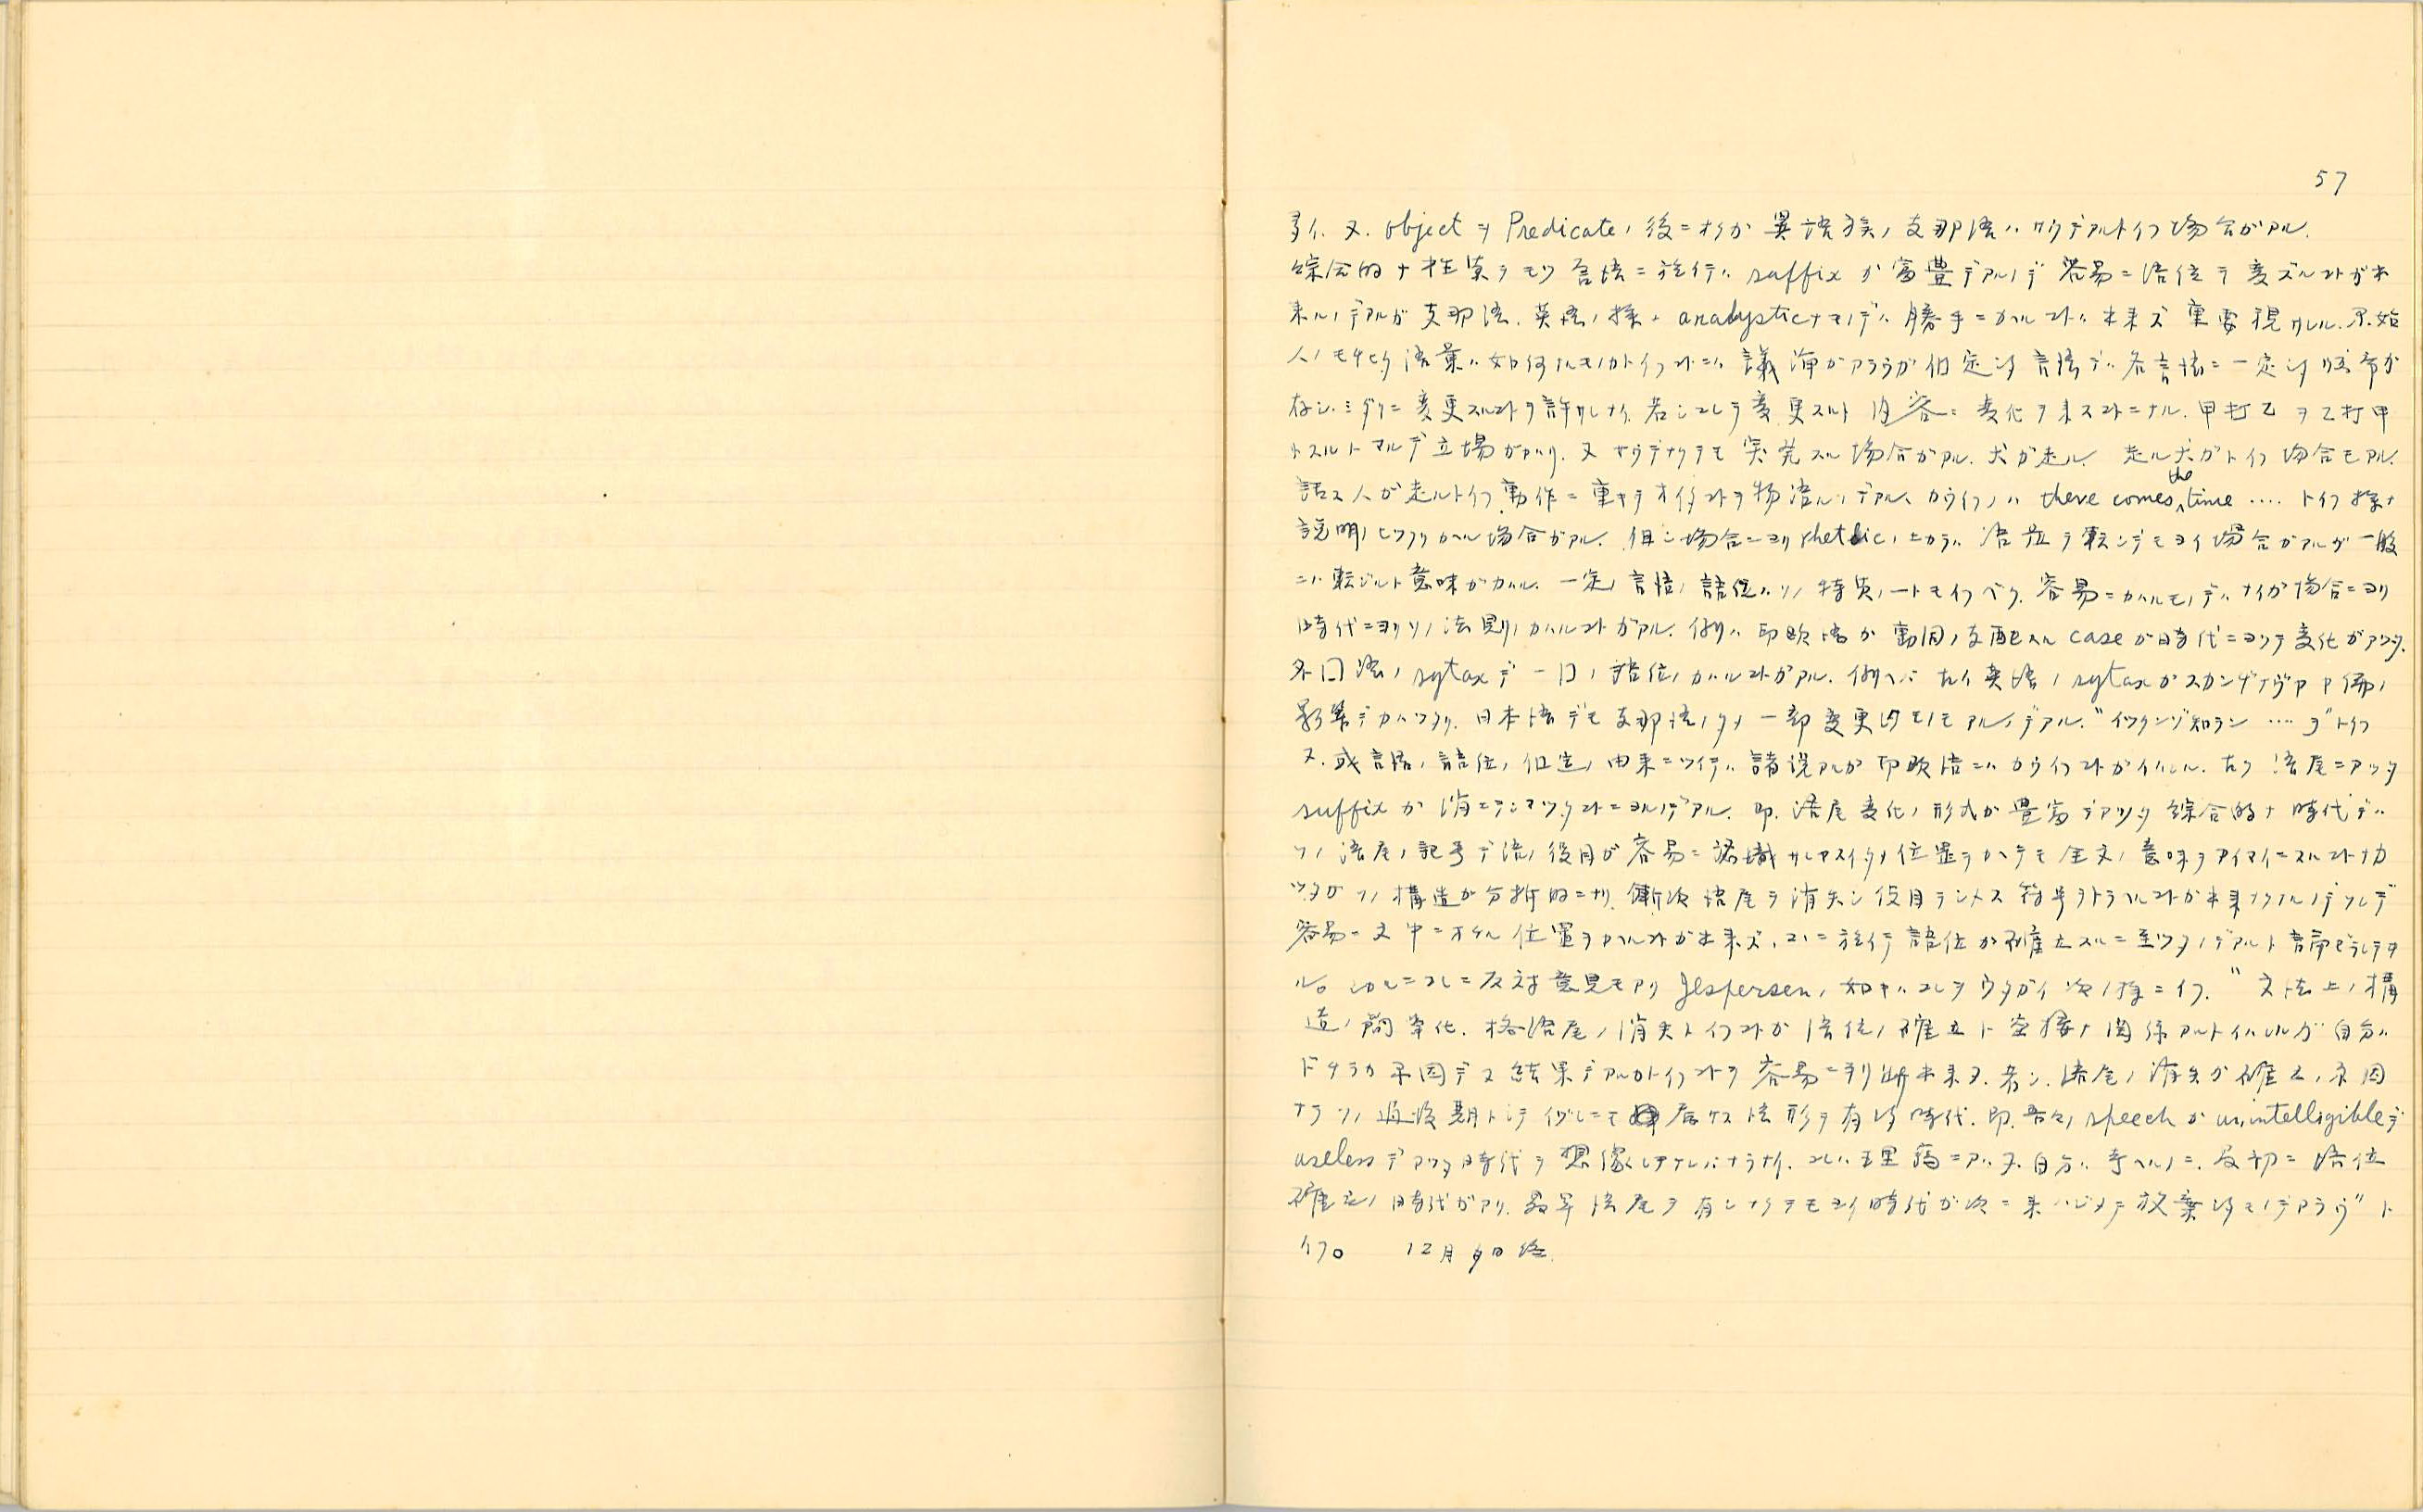 57
多イ. 又. object ヲ Predicate ノ後ニオクカ 異語族ノ支那語ハサウデアルトイフ場合ガアル.
綜合的ナ性質ヲモツ言語ニ於テハ suffix ガ富豊デアルノデ容易ニ語位ヲ変ズルコトガ出
来ルノデアルガ支那語. 英語ノ様ナ analystic ナモノデハ勝手ニカヘルコトハ出来ズ重要視サレル. 原始
人ノモチヒタ語葉ハ如何ナルモノカトイフコトニハ議論ガアラウガ但定シタ言語デハ各言語ニ一定シタ配布ガ
存シ. ミダリニ変更スルコトヲ許サレナイ. 若シコレヲ変更スルト内容ニ変化ヲ来スコトニナル. 甲打乙ヲ乙打甲
トスルトマルデ立場ガカハリ. 又サウデナクテモ 場合ガアル. 犬ガ走ル 走ル犬ガトイフ場合モアル.
話ス人ガ走ルトイフ動作ニ重キヲオイタコトヲ物語ルノデアル. カウイフノハ there comes the time .... トイフ様ナ
説明ヒツクリカヘル場合ガアル. 但シ場合ニヨリ rhetoric ノ上カラハ語位ヲ転ジテモヨイ場合ガアルガ一般
ニハ転ジルト意味ガカハル. 一定ノ言語ノ語位ハソノ特質ノ一トモイフベク. 容易ニカハルモノデハナイガ場合ニヨリ
時代ニヨリソノ法則ノカハルコトガアル. 例ヘバ印欧語ガ動詞ノ支配スル case ガ時代ニヨツテ変化ガアツタ.
外国語ノ sytax デ一国ノ語位ノカハルコトガアル. 例ヘバ古イ英語ノ sytax ガスカンヂナヴィア
影響デカハツタリ. 日本語デモ支那語ノタメ一部変更シタモノモアルノデアル. "イヅクンゾ知ラン .... ヲ" トイフ
又. 或言語ノ語位ノ但定ノ由来ニツイテハ諸説アルガ印欧語ニハカウイフコトガイハレル. 古ク語尾ニアツタ
suffix ガ消エテシマツタコトニヨルノデアル. 即. 語尾変化ノ形式ガ豊富デアツタ綜合的ナ時代デハ
ソノ語尾ノ記号デ語ノ役目ガ容易ニ認識サレヤスイタメ位置ヲカヘテモ全文ノ意味ヲアイマイニスルコトナカ
ツタガソノ構造ガ分析的ニナリ. 漸次語尾ヲ消失シ役目ヲシメス符号ヲトラヘルコトガ出来ナクナルノデソレデ
容易ニ文中ニオケル位置ヲカヘルコトガ出来ズ. コヽニ於テ語位ガ確立スルニ至ツタノデアルト言語デラレテヰ
ル。シカルニコレニ反対意見モアリ Jespersen ノ如キハコレヲウタガイ次ノ様ニイフ. "文法上ノ構
造ノ簡単化. 格語尾ノ消失トイフコトガ語位ノ確立ト密接ナ関係アルトイハレルガ自分ハ
ドチラガ原因デ又結果デアルカトイフコトヲ容易ニ判断出来ヌ. 若シ. 語尾ノ消失ガ確立ノ原因
ナラソノ過渡期トシテ 語形ヲ有シタ時代. 即. 吾々ノ speech ガ unintelligible デ
useless デアツタ時代ヲ想像シナケレバナラナイ. コレハ理屈ニアハヌ. 自分ハ考ヘルノニ. 最初ニ語位
確立ノ時代ガアリ. 最早語尾ヲ有シナクテモヨイ時代ガ次ニ来ハジメテ放棄シタモノデアラウ" ト
イフ。 12月9日終.